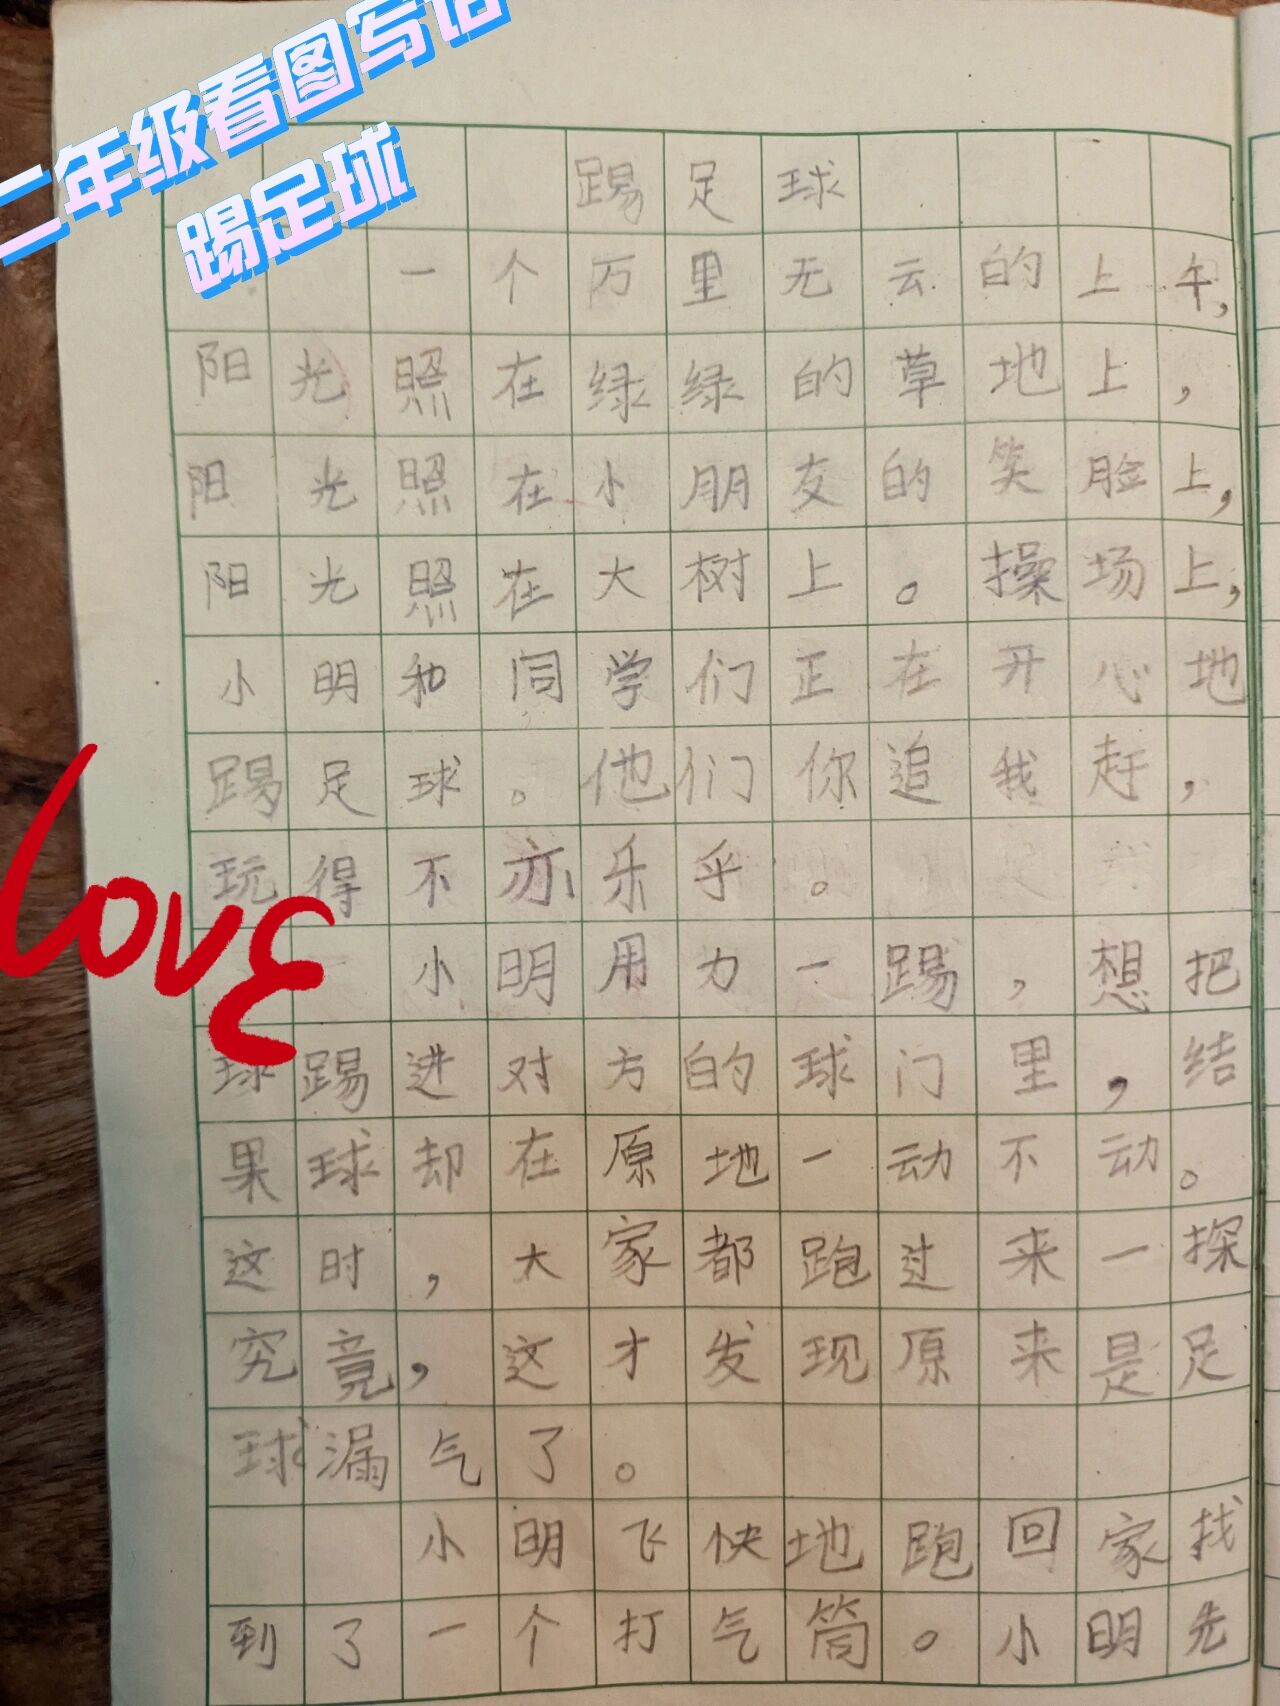 二年级看图写话
踢足球
踢足球
一个万里无云的上午,
阳光照在绿绿的草地上,
阳光照在小朋友的笑脸上,
阳光照在大树上。操场上,
小明和同学们正在开心地
踢足球。他们你追我赶,
玩得不亦乐乎。
小明用力一踢,想把
球踢进对方的球门里,结
果球却在原地一动不动。
这时,大家都跑过来一探
究竟,这才发现原来是足
球漏气了。
小明飞快地跑回家找
到了一个打气筒。小明先
LOVE